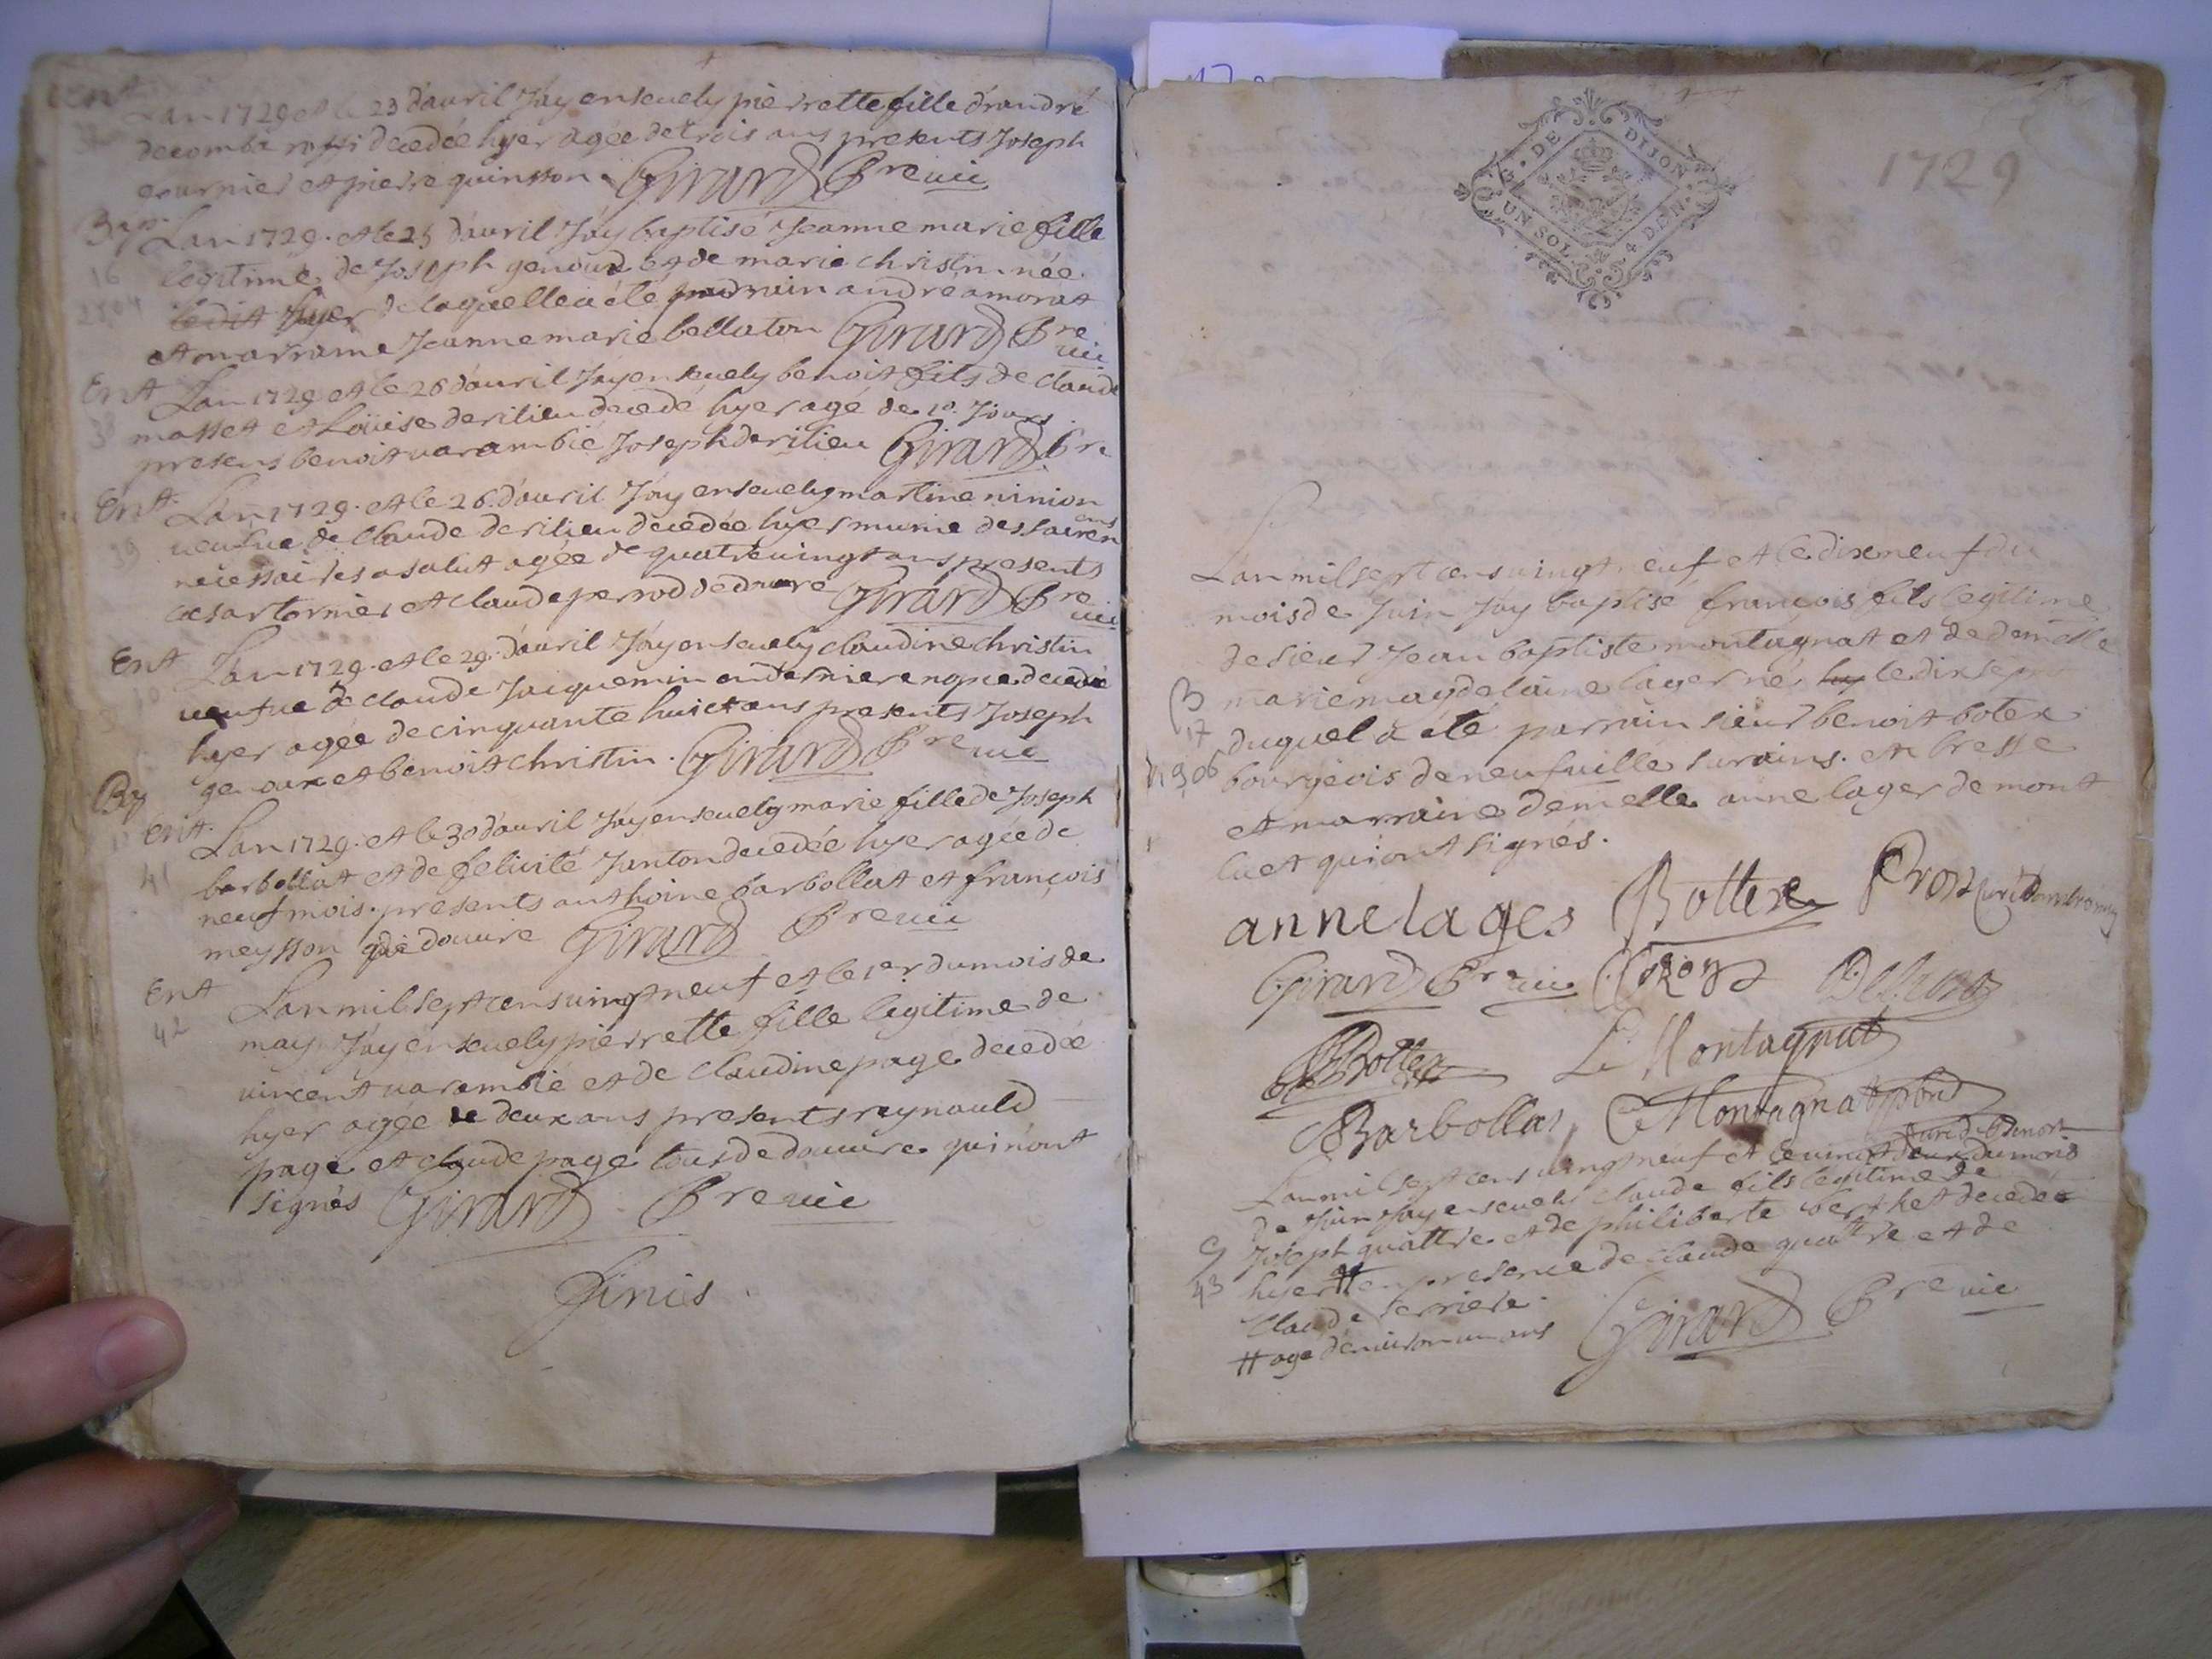 Ent
Lan 1729 et le 23 dauril Jáy enseuely pierrette fille dandré
decomba decedée hyer agée de trois ans presents Joseph
et pierre quinson Girard Pre uic
Bap
Lan 1729. et le 25 dauril Jáy baptisé Jeanne marie fille
16 legitime de Joseph genoud et de marie christin née
ledit hyer de laquelle a élé parrain andre amorat
et marraine Jeanne marie bellaton Girard Pre uic
Ent Lan 1729 et le 26 dauril Jáy enseuely benoit fils de claude
38 masset et Loüise derilieu decedé hyer agé de 10. Jours
presens benoit uarambié Joseph derilieu Girard Pre
Ent. Lan 1729. et le 26. dauril Jáy enseuely martine ninion
39 ueufue de Claude derilieu decedée hyer munie des sacremens
necessaires a salut agée de quatreuingt ans presents
cesar tornier et claude perrod de douure Girard Pre uic
Ent Lan 1729. et le 29. dauril Jáy enseuely claudine christin
ueufue de claude Jacquemin en decedée
hyer agée de cinquante huict ans presents Joseph
genoux et benoit christin. Girard Pre uic
Bap
Ent. Lan 1729. et le 30 dauril Jáy enseuely marie fille de Joseph
41 barbollat et de felicité Janton decedée hyer agée de
neuf mois. presents anthoine barbollat et françois
meysson de douure Girard Pre uic
Ent Lan mil sept cens uingt neuf et le 1er du mois de
42 may Jáy enseuely pierrette fille legitime de
uincent uarambié et de claudine page decedée
hyer agée de deux ans presents reynauld
page et claude page tous de douure qui n'ont
signés Girard Pre uic
finis.
G. DE DIJON
UN SOL 4 DEN.
1729
Lan mil sept cens uingt neuf et le dixneuf du
mois de Juin Jáy baptisé françois fils legitime
de sieur Jean baptiste montagnat et de demelle
B marie magdelaine lager né le dixsept
17 duquel a été parrain sieur benoit botex
bourgeois de neufuille surains. en bresse
et marraine demelle anne lager de mont
luet qui ont signés.
anne lages Bottex Cron curé dambronay
Girard Pre uic
Bottex L. Montagnat
Barbollat Montagnat
Lan mil sept cens uingt neuf et le uingt deux du mois
de Juin Jáy enseueli claude fils legitime de
Joseph quattre et de philiberte berthet decedé
43 hyer # en presence de claude quattre et de
Claude serriere.
# agé denuiron un ans Girard Pre uic